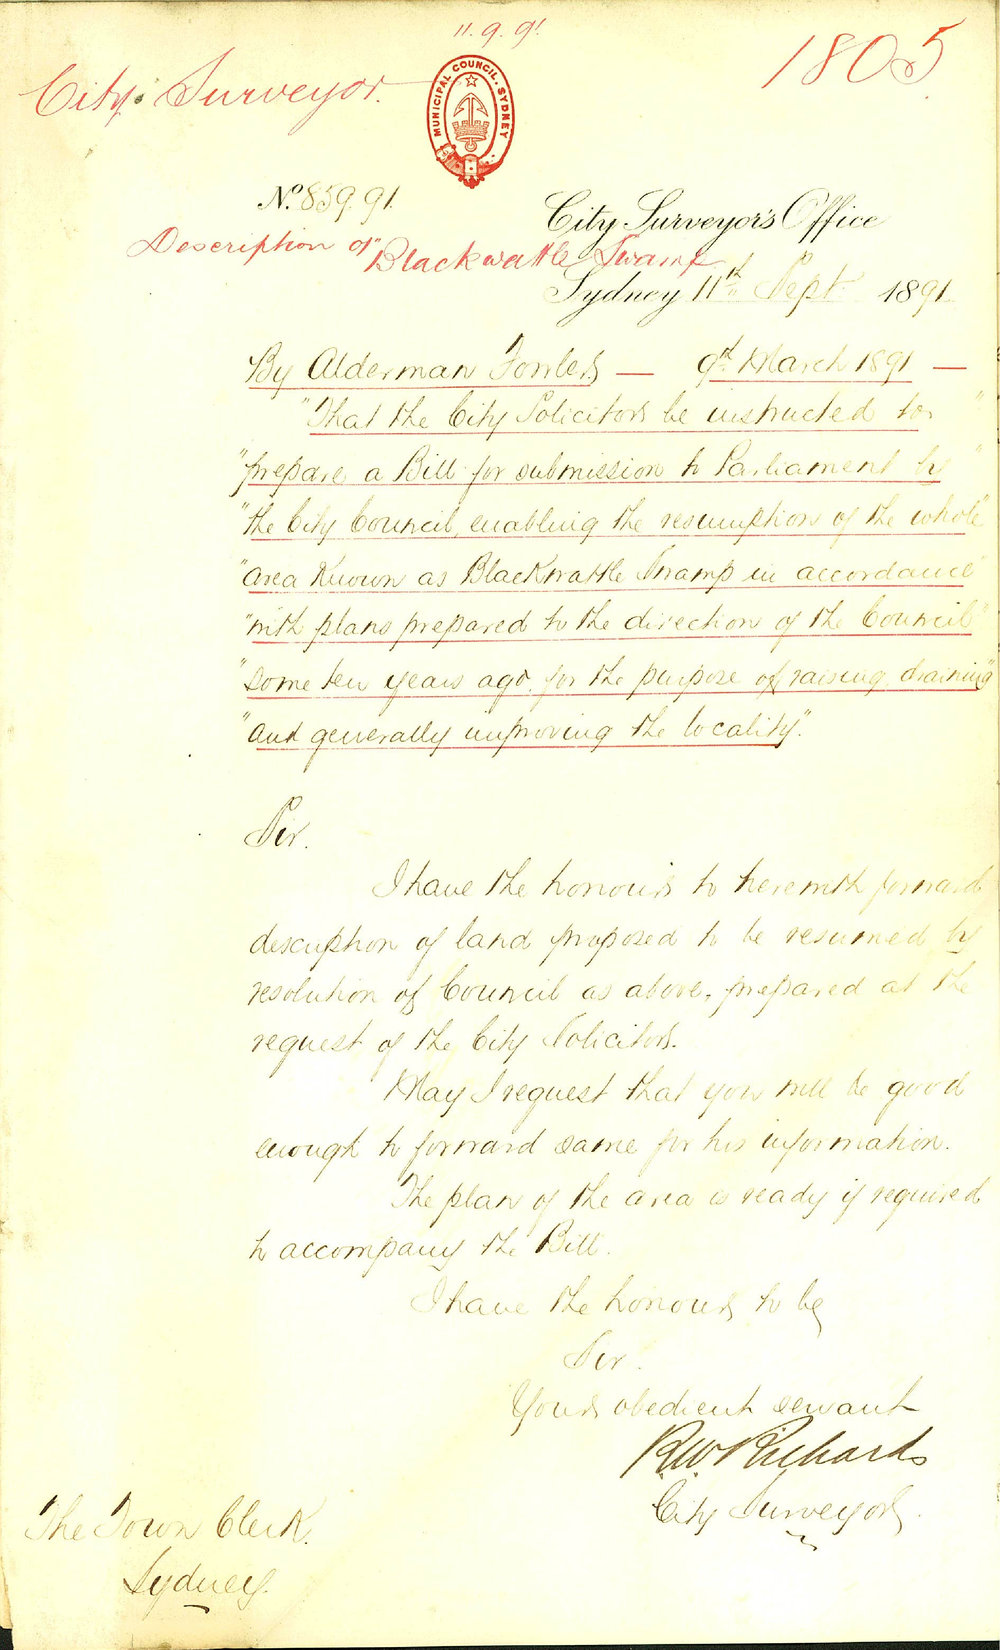 11.9.91.
1805
City Surveyor.
MUNICIPAL COUNCIL. SYDNEY
No. 859.91.
City Surveyor's Office
Description of Blackwattle Swamp
Sydney 11th Sept 1891
By Alderman Fowler — 9th March 1891 —
"That the City Solicitor be instructed to "
"prepare a Bill for submission to Parliament by "
"the City Council, enabling the resumption of the whole"
"area known as Blackwattle Swamp in accordance"
"with plans prepared to the direction of the Council"
"some ten years ago, for the purpose of raising, draining"
"and generally improving the locality".
Sir.
I have the honour to herewith forward
description of land proposed to be resumed by
resolution of Council as above, prepared at the
request of the City Solicitor.
May I request that you will be good
enough to forward same for his information.
The plan of the area is ready if required
to accompany the Bill.
I have the honour to be
Sir.
Your obedient servant
R.W. Richards
City Surveyor.
The Town Clerk.
Sydney.